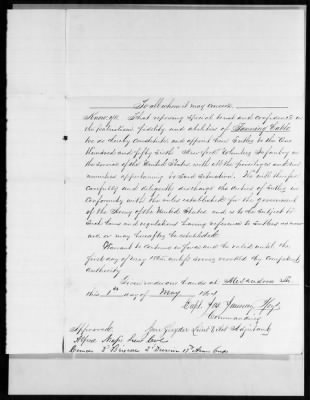 To all whom it may concern.
Know ye. That reposing special trust and confidence in
the patriotism fidelity and abilities of Fanning Cable
we do hereby constitute and appoint him Sutler to the One
Hundred and fifty sixth New York Volunteer Infantry in
the service of the United States with all the privileges and
appertaining to said situation. He will therefore
carefully and diligently discharge the duties of Sutler in
conformity with the rules established for the government
of the Army of the United States and is to be subject to
such laws and regulations having reference to Sutlers as now
are or may hereafter be established
Warrant to continue in force and be valid until the
first day of May 1865 unless sooner revoked by competent
authority
Given under our hands at Alexandria La
this 1st day of May 1864
Capt. Jas.
Commanding
Approved Lieut & Act Adjutant
Alfred Lieut Col
2d Division 19th Army Corps